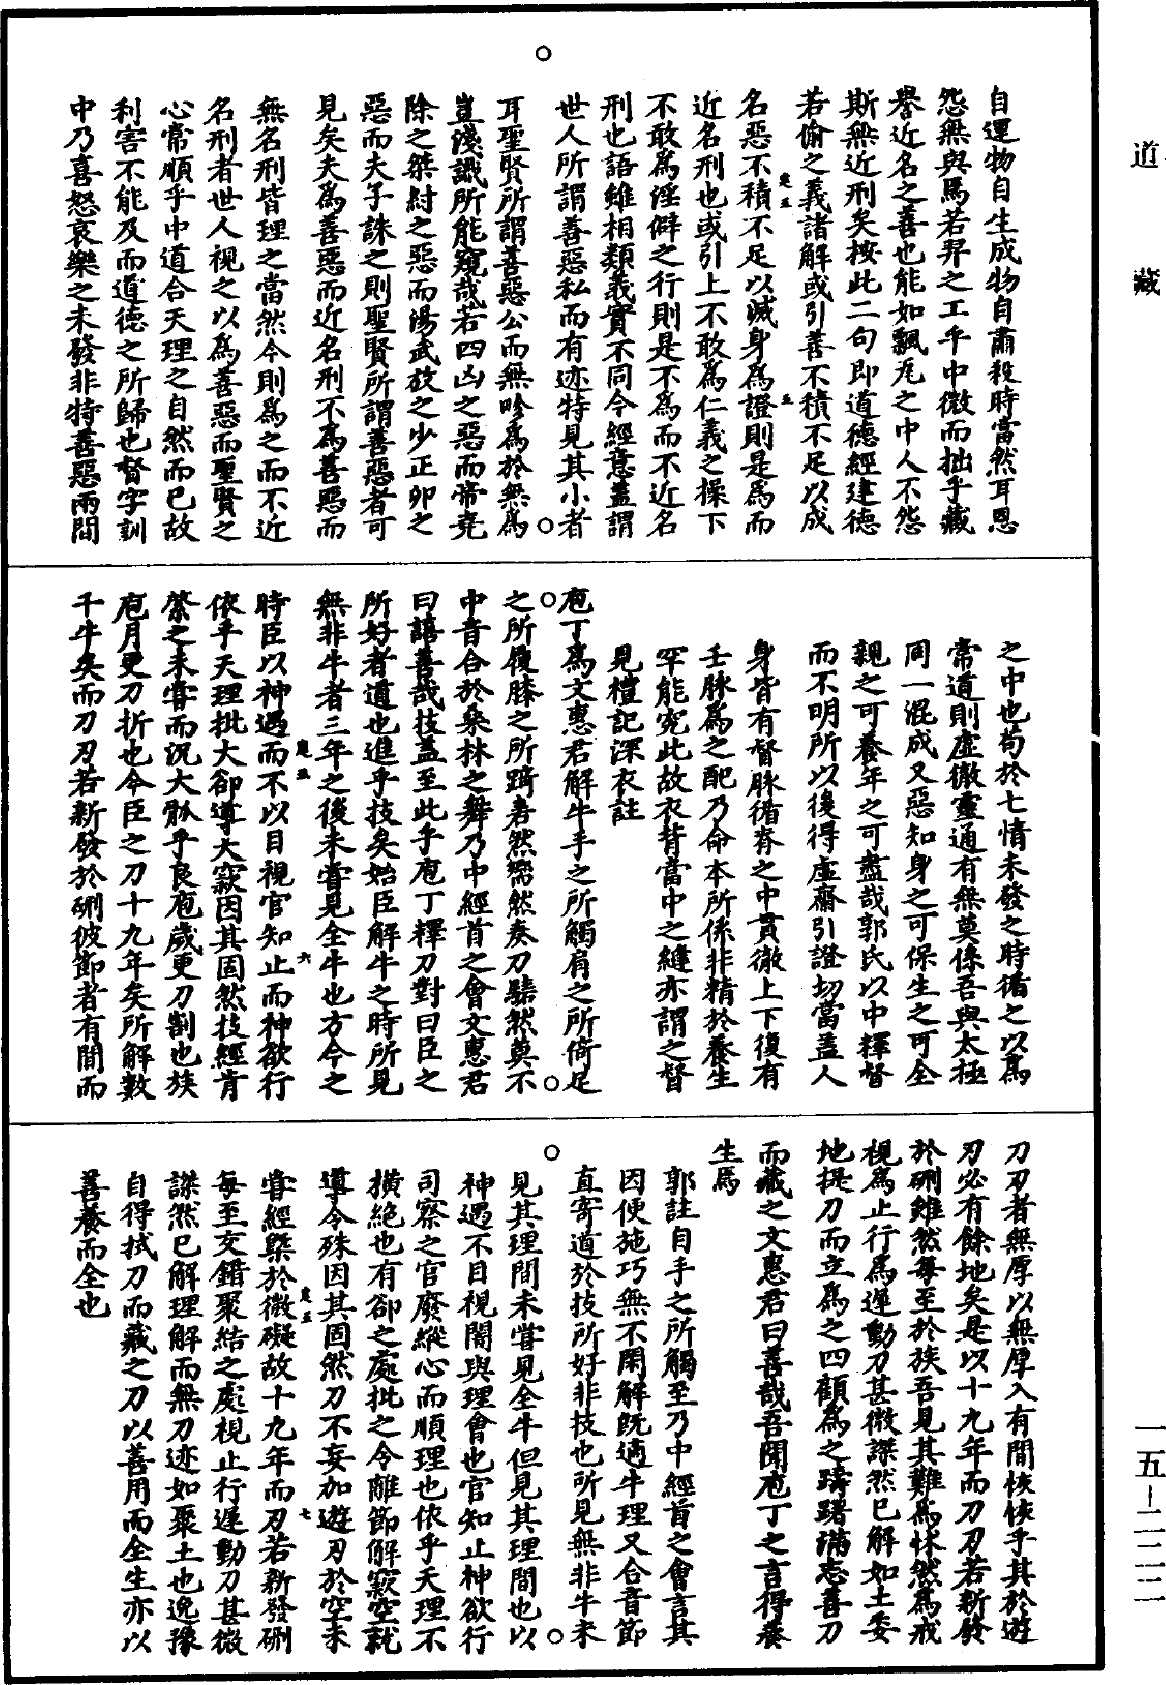 道藏
自運物自生成物自肅殺時當然耳恩
怨無與焉若羿之工乎中微而拙乎藏
譽近名之善也能如飄瓦之中人不怨
斯無近刑矣按此二句即道德經建德
若偷之義諸解或引善不積不足以成
名惡不積不足以滅身為證則是為而
近名刑也或引上不敢為仁義之操下
不敢為淫僻之行則是不為而不近名
刑也語雖相類義實不同今經意蓋謂
世人所謂善惡私而有迹特見其小者
耳聖賢所謂善惡公而無吟為於無為
豈淺識所能窺哉若四凶之惡而帝堯
除之桀紂之惡而湯武放之少正卯之
惡而夫子誅之則聖賢所謂善惡者可
見矣夫為善惡而近名刑不為善惡而
無名刑皆理之當然今則為之而不近
名刑者世人視之以為善惡而聖賢之
心常順乎中道合天理之自然而已故
利害不能及而道德之所歸也督字訓
中乃喜怒哀樂之未發非特善惡兩間
之中也苟於七情未發之時循之以為
常道則虛徹靈通有無莫係吾與太極
同一混成又惡知身之可保生之可全
親之可養年之可盡哉郭氏以中釋督
而不明所以後得虛齋引證切當蓋人
身皆有督脉循脊之中貫徹上下復有
壬脉為之配乃命本所係非精於養生
罕能究此故衣背當中之縫亦謂之督
見禮記深衣註
庖丁為文惠君解牛手之所觸肩之所倚足
之所履膝之所踦砉然嚮然奏刀騞然莫不
中音合於桑林之舞乃中經首之會文惠君
曰譆善哉技蓋至此乎庖丁釋刀對曰臣之
所好者道也進乎技矣始臣解牛之時所見
無非牛者三年之後未嘗見全牛也方今之
時臣以神遇而不以目視官知止而神欲行
依乎天理批大卻導大窾因其固然技經肯
綮之未嘗而況大軱乎良庖歲更刀割也族
庖月更刀折也今臣之刀十九年矣所解數
千牛矣而刀刃若新發於硎彼節者有間而
刀刃者無厚以無厚入有間恢恢乎其於遊
刃必有餘地矣是以十九年而刀刃若新發
於硎雖然每至於族吾見其難為怵然為戒
視為止行為遲動刀甚微謋然已解如土委
地提刀而立為之四顧為之躊躇滿志善刀
而藏之文惠君曰善哉吾聞庖丁之言得養
生焉
郭註自手之所觸至乃中經首之會言其
因便施巧無不閑解既適牛理又合音節
直寄道於技所好非技也所見無非牛未
見其理間未嘗見全牛但見其理間也以
神遇不目視闇與理會也官知止神欲行
司察之官廢縱心而順理也依乎天理不
橫絕也有卻之處批之令離節解窾空就
導令殊因其固然刀不妄加遊刃於空未
嘗經槩於微礙故十九年而刃若新發硎
每至交錯聚結之處視止行遲動刀甚微
謋然已解理解而無刀迹如聚土也逸豫
自得拭刀而藏之刀以善用而全生亦以
善養而全也
一五-二二二